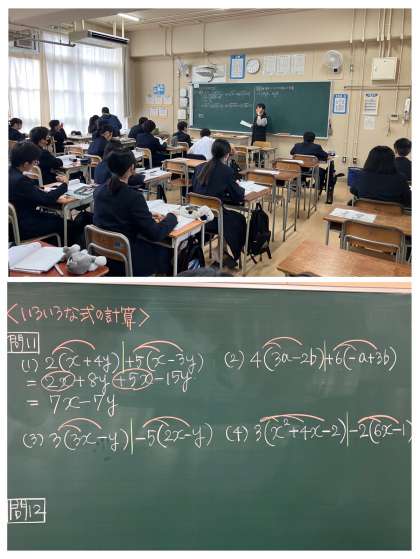 <いろいろな式の計算>
問11
(1) 2(x+4y)+5(x-3y) (2) 4(3a-2b)+6(-a+3b)
= 2x+8y+5x-15y
= 7x-7y
(3) 3(3x-y)-5(2x-y) (4) 3(x²+4x-2)-2(6x-1)
問12